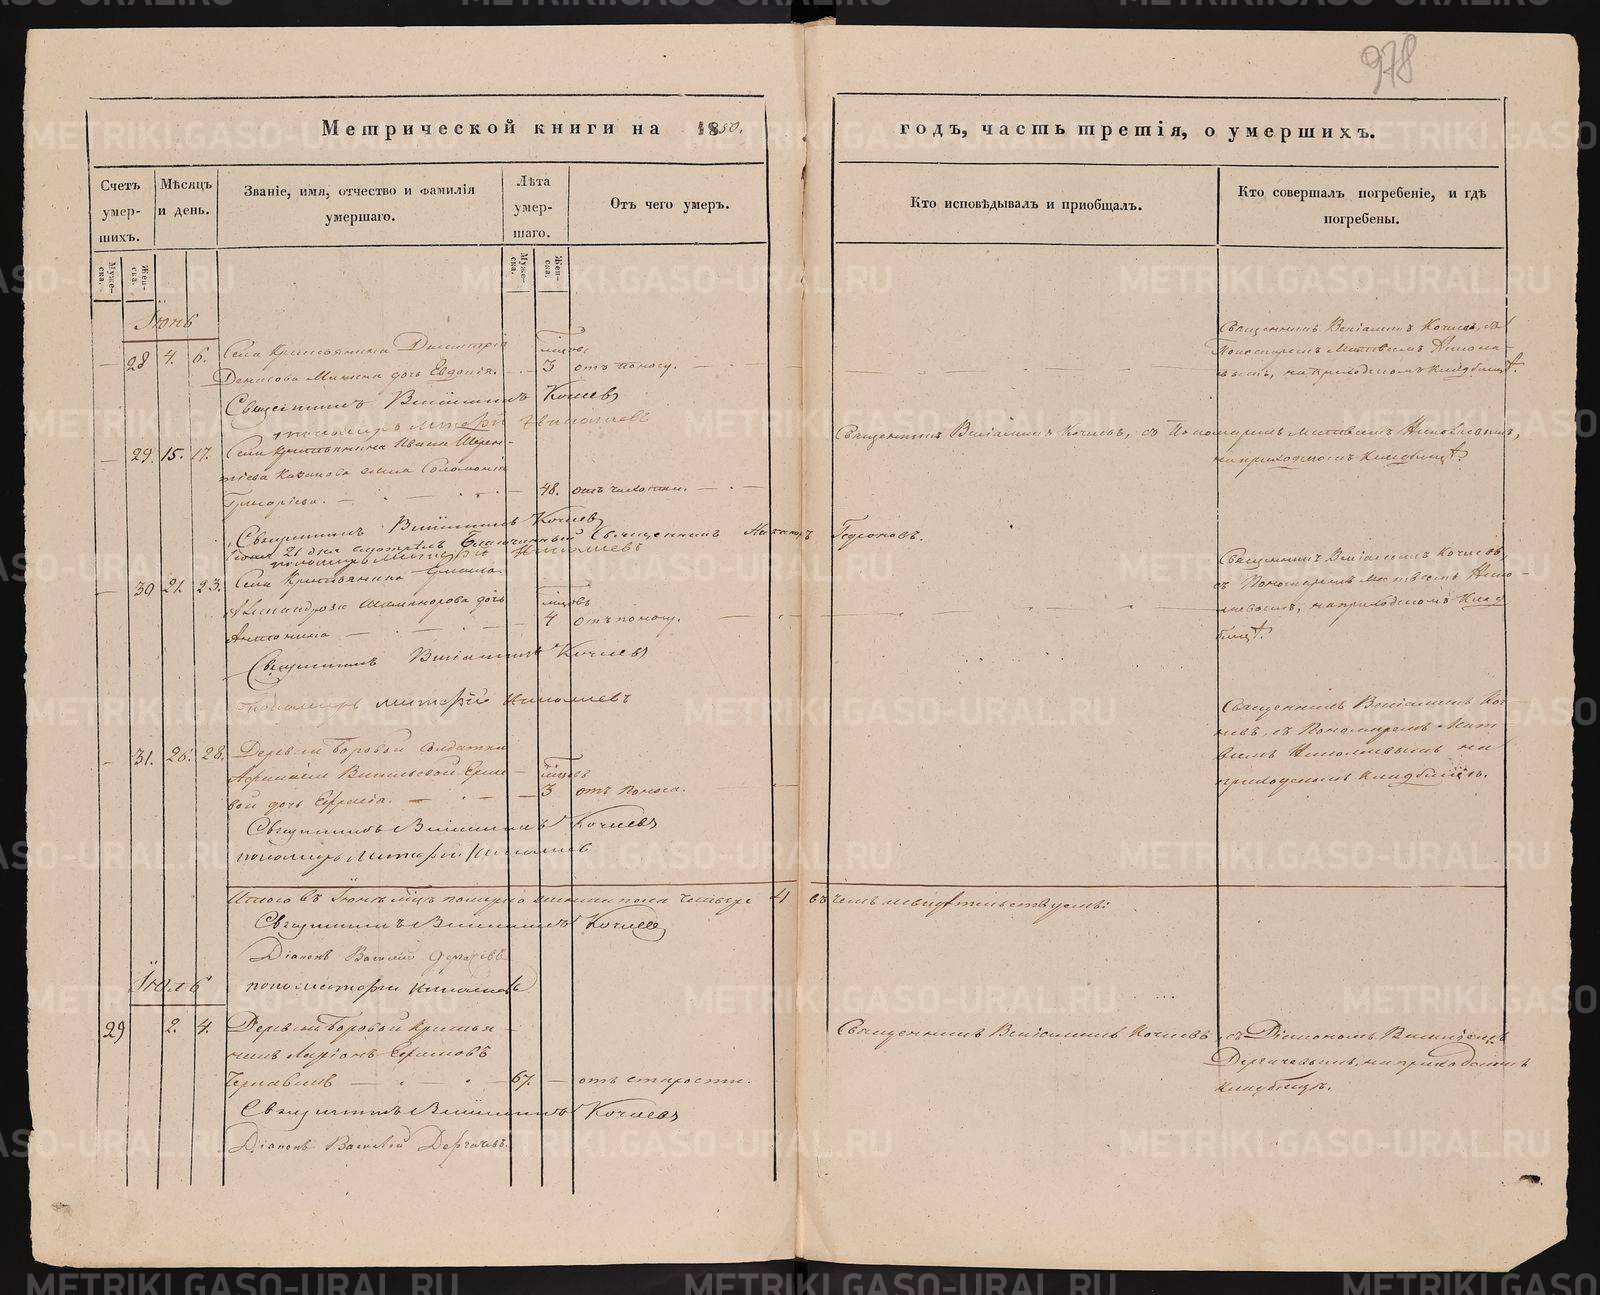 978
Метрической книги на 1850.
годъ, часть третія, о умершихъ.
Счетъ умер-шихъ.
Мѣсяцъ и день.
Званіе, имя, отчество и фамилія умершаго.
Лѣта умер-шаго.
Отъ чего умеръ.
Кто исповѣдывалъ и приобщалъ.
Кто совершалъ погребеніе, и гдѣ погребены.
Муже-ска.
Жен-ска.
Муже-ска.
Жен-ска.
Іюнь
28 4. 6. Села Крестьянина Димитрія
Денисова дочь Евдокія. 3 отъ поносу.
Священникъ Веніаминъ Кочневъ, съ
Пономаремъ Матвѣемъ Никола-
евымъ, на приходскомъ кладбищѣ.
Священникъ Веніаминъ Кочневъ
пономарь Матфій Николаевъ
29. 15. 17. Села Крестьянина Ивана
жена Соломонія
Григорьева. 48. отъ чахотки.
Священникъ Веніаминъ Кочневъ, съ Пономаремъ Матвѣемъ Николаевымъ,
на приходскомъ кладбищѣ.
Священникъ Веніаминъ Кочневъ
Іюня 21 дня смотрѣлъ Благочинный Священникъ
пономарь Матфій Николаевъ
30 21. 23. Села Крестьянина
дочь
Антонина 4 отъ поносу.
Священникъ Веніаминъ Кочневъ,
съ Пономаремъ Матвѣемъ Нико-
лаевымъ, на приходскомъ клад-
бищѣ.
Священникъ Веніаминъ Кочневъ
Пономарь Матфій Николаевъ
31. 26. 28. Деревни Боровой солдатки
дочь 3 отъ поноса.
Священникъ Веніаминъ Коч-
невъ, съ Пономаремъ Мат-
вѣемъ Николаевымъ на
приходскомъ кладбищѣ.
Священникъ Веніаминъ Кочневъ
пономарь Матфій Николаевъ
Итого въ Іюнѣ м-цѣ померло женска пола четыре 4 въ чемъ и свидѣтельствуемъ:
Священникъ Веніаминъ Кочневъ
Діаконъ Василій Дергачевъ
пономарь Матфій Николаевъ
Іюль
29 2. 4. Деревни Боровой Крестья-
нинъ Ларіонъ Ефимовъ
67. отъ старости.
Священникъ Веніаминъ Кочневъ, съ Діакономъ Василіемъ
Дергачевымъ, на приходскомъ
кладбищѣ.
Священникъ Веніаминъ Кочневъ
Діаконъ Василій Дергачевъ.
METRIKI.GASO-URAL.RU